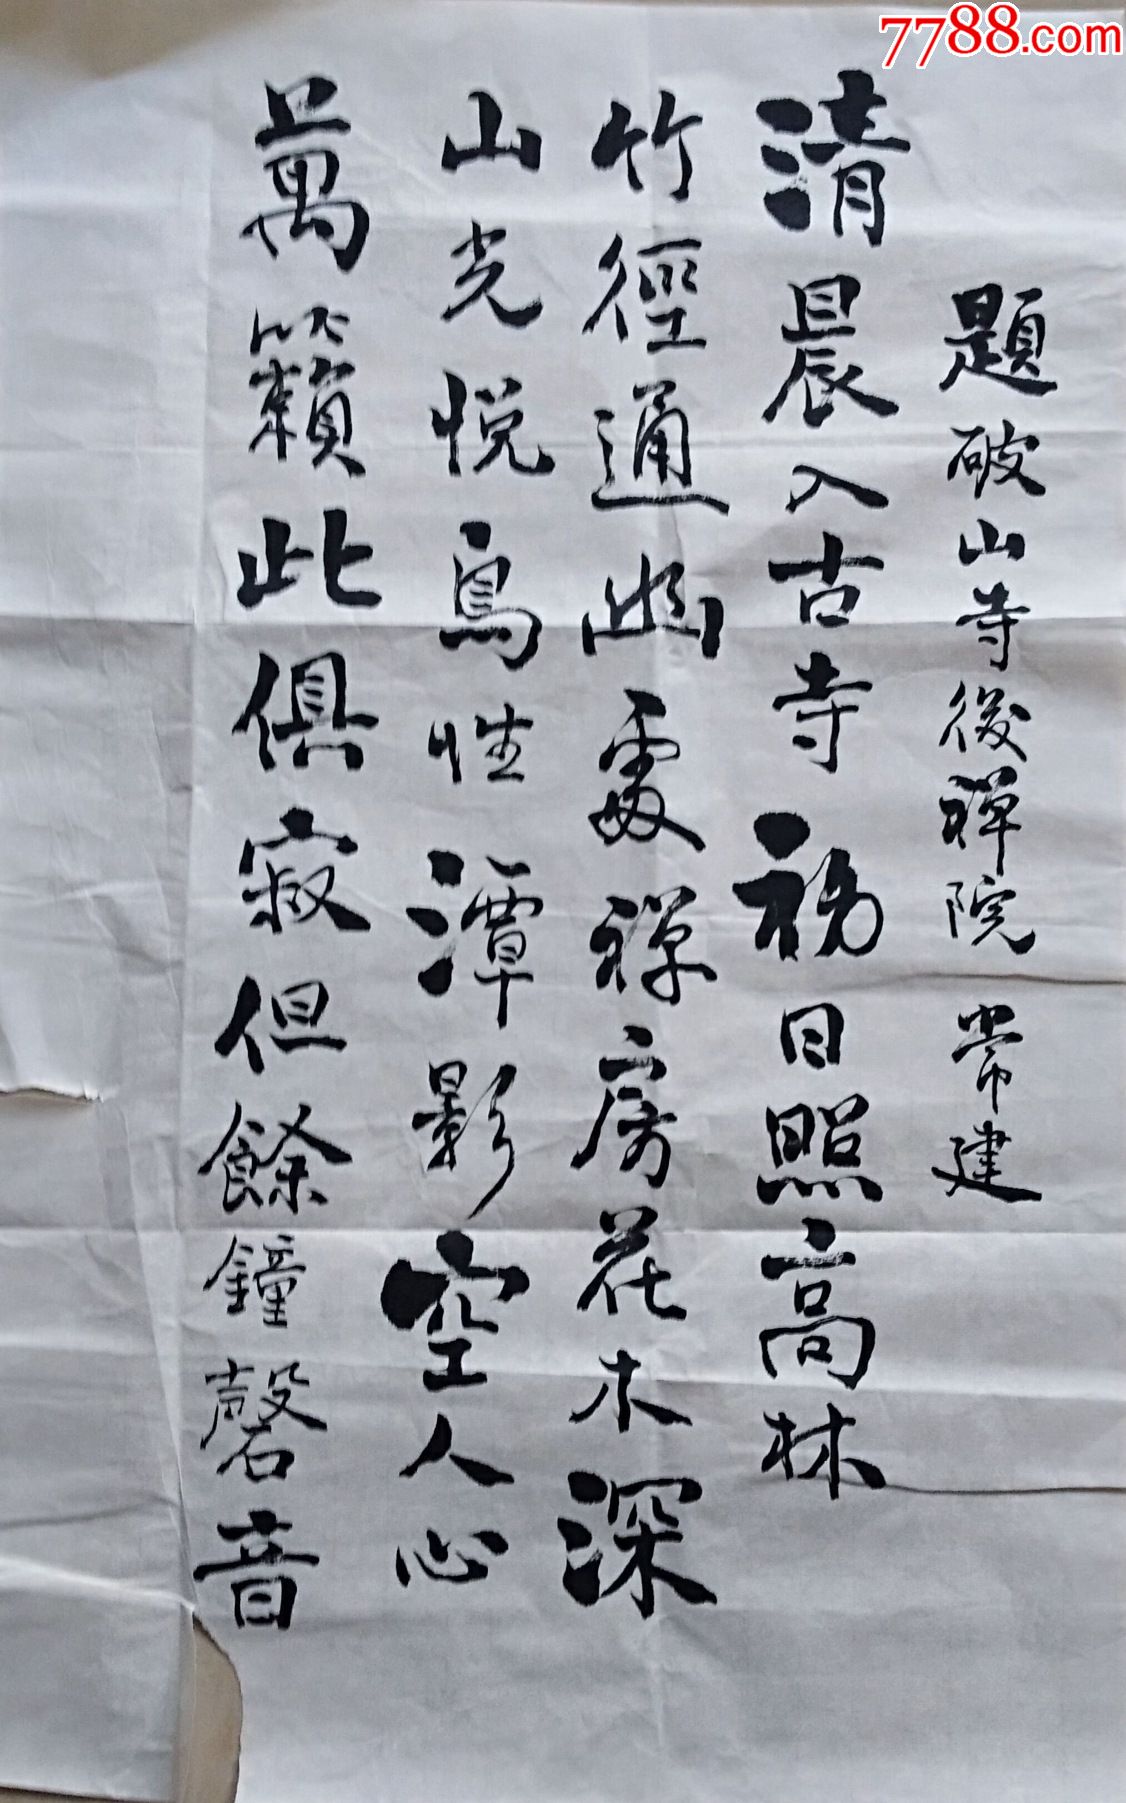 7788.com
題破山寺後禪院 常建
清晨入古寺初日照高林
竹徑通幽處禪房花木深
山光悦鳥性潭影空人心
萬籟此俱寂但餘鐘磬音